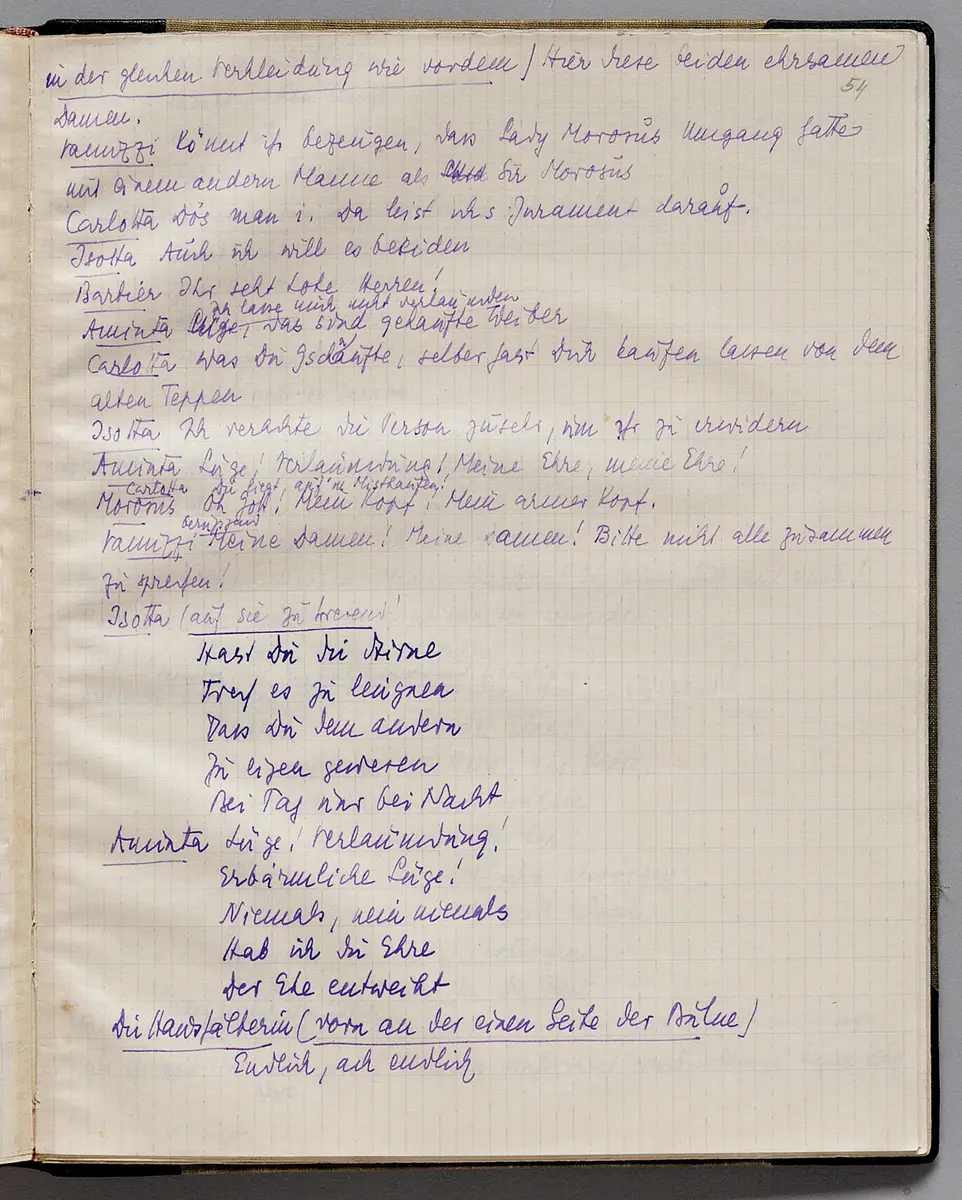 in der gleichen Verkleidung wie vordem) Hier diese beiden ehrsamen
54
Damen.
Vanuzzi Könnt ihr bezeugen, dass Lady Morosus Umgang hatte
mit einem andern Manne als Sir Morosus
Carlotta Dös man i. Da leist ich s Jurament darauf.
Isotta Auch ich will es beeiden
Barbier Ihr seht hohe Herren!
ich lasse mich nicht verlaumden
Aminta Lüge, das sind gekaufte Weiber
Carlotta Was Du Gschäufte, selber hast Dich kaufen lassen von dem
alten Teppen
Isotta Ich verachte die Person zu sehr, um ihr zu erwidern
Aminta Lüge! Verlaumdung! Meine Ehre, meine Ehre!
Carlotta Die liegt auf'm Misthaufen!
Morosus Oh Gott! Mein Kopf! Mein armer Kopf.
Vanuzzi Meine Damen! Meine Damen! Bitte nicht alle zusammen
zu sprechen!
Isotta (auf sie zu tretend)
Hast Du die Stirne
Frech es zu leugnen
Dass Du dem andern
Zu eigen gewesen
Bei Tag und bei Nacht
Aminta Lüge! Verlaumdung!
Erbärmliche Lüge!
Niemals, nein niemals
Hab ich die Ehre
Der Ehe entweiht
Die Haushälterin (vorn an der einen Seite der Bühne)
Endlich, ach endlich